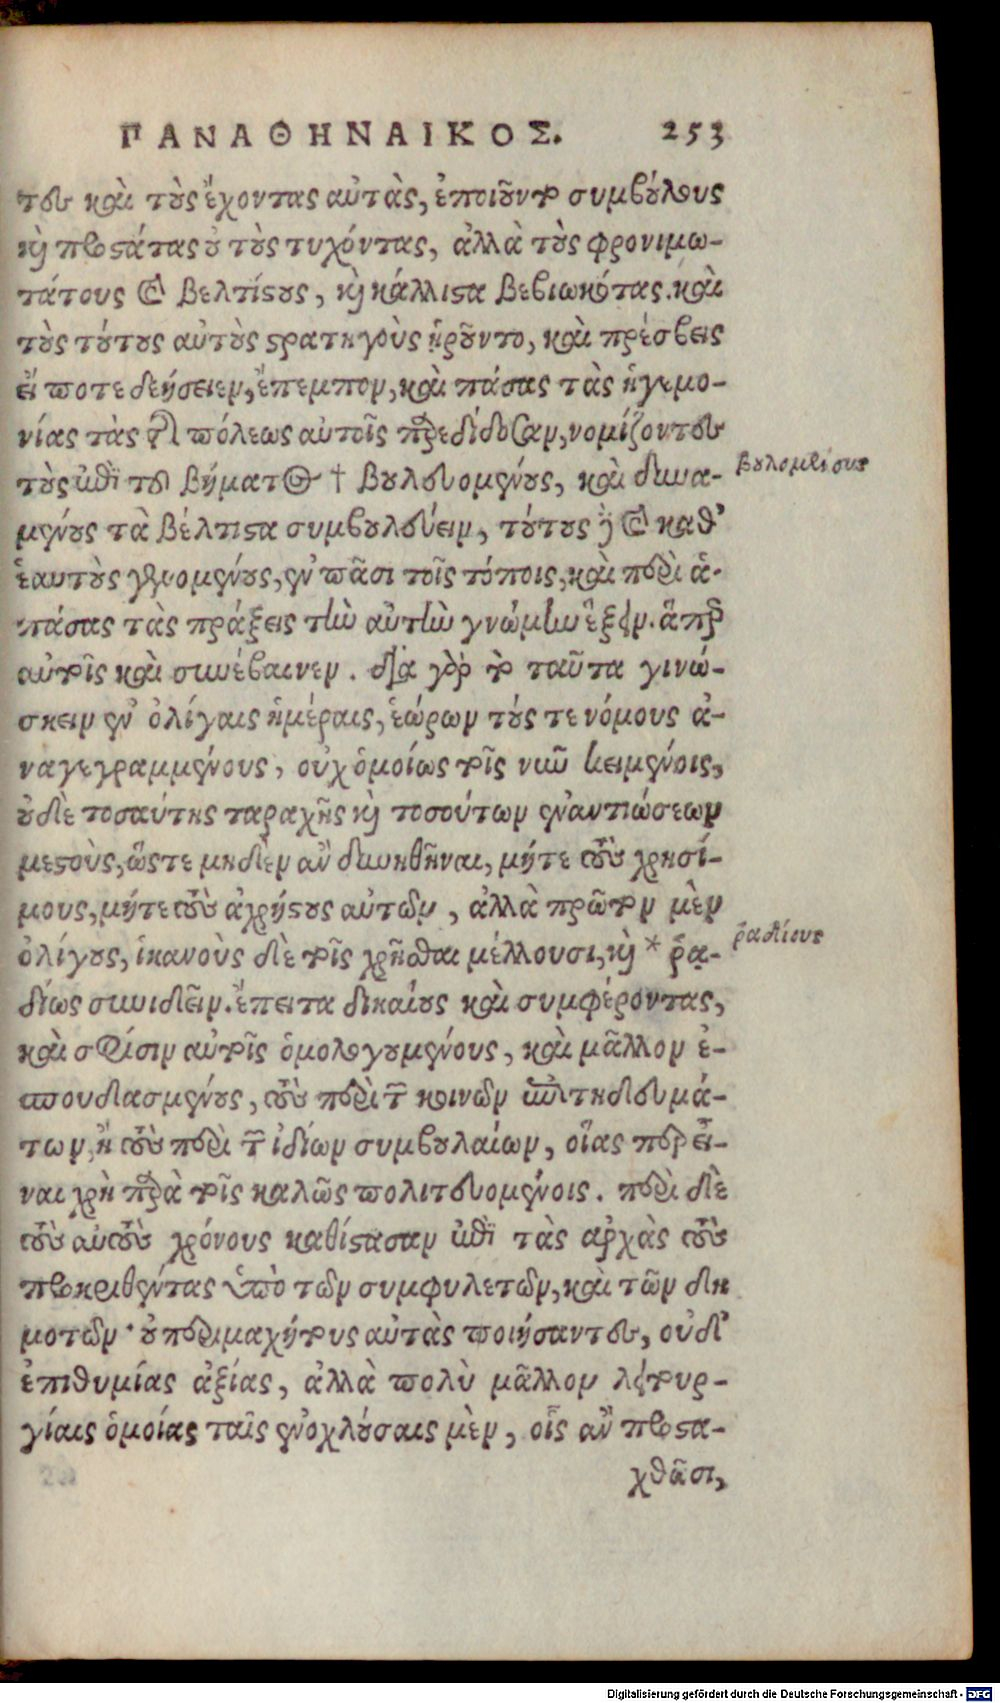 ΠΑΝΑΘΗΝΑΙΚΟΣ. 253
τες καὶ τοὺς ἔχοντας αὐτὰς, ἐποιοῦντο συμβούλους
καὶ προστάτας οὐ τοὺς τυχόντας, ἀλλὰ τοὺς φρονιμω-
τάτους καὶ βελτίστους, καὶ κάλλιστα βεβιωκότας. καὶ
τοὺς τούτους αὐτοὺς στρατηγοὺς ᾑροῦντο, καὶ πρέσβεις
εἴ ποτε δεήσειεν, ἔπεμπον, καὶ πάσας τὰς ἡγεμο-
νίας τὰς τῆς πόλεως αὐτοῖς παρεδίδοσαν, νομίζοντες
τοὺς ἐπὶ τοῦ βήματος † βουλευομένους, καὶ δυνα-
μένους τὰ βέλτιστα συμβουλεύειν, τούτους δὲ καὶ καθ'
ἑαυτοὺς γενομένους, ἐν πᾶσι τοῖς τόποις, καὶ περὶ ἁ-
πάσας τὰς πράξεις τὴν αὐτὴν γνώμην ἕξειν. ἅπερ
αὐτοῖς καὶ συνέβαινεν. διὰ γὰρ τὸ ταῦτα γινώ-
σκειν ἐν ὀλίγαις ἡμέραις, ἑώρων τούς τε νόμους ἀ-
ναγεγραμμένους, οὐχ ὁμοίως τοῖς νῦν κειμένοις,
οὐδὲ τοσαύτης ταραχῆς καὶ τοσούτων ἐναντιώσεων
μεστοὺς, ὥστε μηδὲν ἂν δυνηθῆναι, μήτε τοὺς χρησί-
μους, μήτε τοὺς ἀχρήστους αὐτῶν, ἀλλὰ πρῶτον μὲν
ὀλίγους, ἱκανοὺς δὲ τοῖς χρῆσθαι μέλλουσι, καὶ * ῥᾳ-
δίως συνιδεῖν. ἔπειτα δικαίους καὶ συμφέροντας,
καὶ σφίσιν αὐτοῖς ὁμολογουμένους, καὶ μᾶλλον ἐ-
σπουδασμένους, τοὺς περὶ τῶν κοινῶν ἐπιτηδευμά-
των, ἢ τοὺς περὶ τῶν ἰδίων συμβολαίων, οἵας περ εἶ-
ναι χρὴ παρὰ τοῖς καλῶς πολιτευομένοις. περὶ δὲ
τοὺς αὐτοὺς χρόνους καθίστασαν ἐπὶ τὰς ἀρχὰς τοὺς
προκριθέντας ὑπὸ τῶν συμφυλετῶν, καὶ τῶν δη
μοτῶν· οὐ περιμαχήτους αὐτὰς ποιήσαντες, οὐδ'
ἐπιθυμίας ἀξίας, ἀλλὰ πολὺ μᾶλλον λειτουρ-
γίαις ὁμοίας ταῖς ἐνοχλούσαις μὲν, οἷς ἂν προστα-
χθῶσι,
βουλομένους
ῥᾳδίους
Digitalisierung gefördert durch die Deutsche Forschungsgemeinschaft - DFG